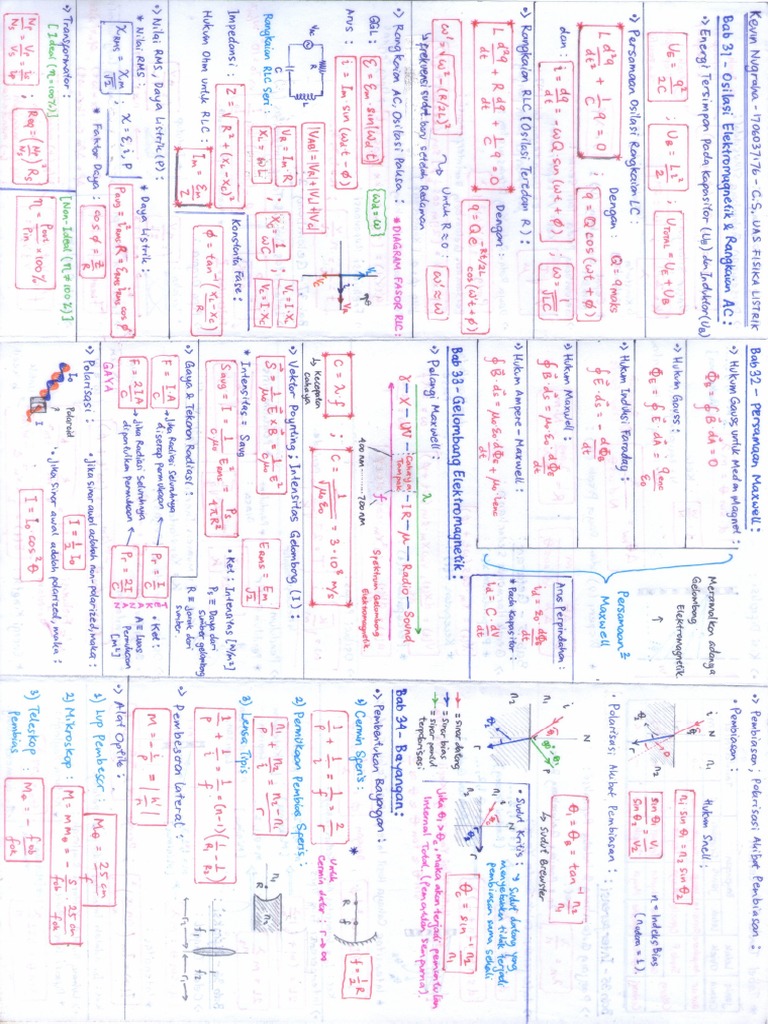 Kevin Nugroho - 1706037176 - C.S. UAS FISIKA LISTRIK
Bab 31 - Osilasi Elektromagnetik & Rangkaian AC:
•) Energi Tersimpan Pada Kapasitor (UE) dan Induktor (UB)
UE = q²/2C ; UB = Li²/2 ; UTOTAL = UE + UB
•) Persamaan Osilasi Rangkaian LC:
L d²q/dt² + 1/C q = 0 ; Dengan: Q = q maks
q = Q cos(ωt + ϕ)
dan: i = dq/dt = -ωQ sin(ωt + ϕ) ; ω = 1/√LC
•) Rangkaian RLC (Osilasi Teredam R):
L d²q/dt² + R dq/dt + 1/C q = 0 Dengan:
q = Q e^(-Rt/2L) cos(ω't + ϕ)
ω' = √(ω² - (R/2L)²) Untuk R ≈ 0: ω' ≈ ω
↳ frekuensi sudut baru setelah Redaman
•) Rangkaian AC, Osilasi Paksa: * DIAGRAM FASOR RLC:
GGL: ℰ = ℰm sin(ωd t) ωd = ω
Arus: i = Im sin(ωd t - ϕ)
|VAB| = |VR| + |VL| + |Vc|
Rangkaian RLC Seri:
VR = Im.R ; Xc = 1/ωC ; VL = I.XL
XL = ωL ; Vc = I.Xc
Impedansi: Z = √(R² + (XL - Xc)²) Konstanta Fase:
ϕ = tan⁻¹ (XL - Xc / R)
Hukum Ohm untuk RLC: Im = ℰm/Z
•) Nilai RMS, Daya Listrik (P):
* Nilai RMS: * Daya Listrik:
XRMS = Xm/√2 ; X = ℰ, i, P
* Faktor Daya: cos ϕ = Z/R
•) Transformator:
[Ideal (η = 100%)] [Non-Ideal (η ≠ 100%)]
Req = (Np/Ns)² Rs
η = Pout/Pin × 100%
Bab 32 - Persamaan Maxwell:
•) Hukum Gauss untuk Medan Magnet:
ΦB = ∮ B dA = 0
•) Hukum Gauss:
ΦE = ∮ E dA = q enc/ε0
•) Hukum Induksi Faraday:
∮ E ds = - dΦB/dt
•) Hukum Maxwell:
∮ B ds = μ0 ε0 dΦE/dt
•) Hukum Ampere - Maxwell:
∮ B ds = μ0 ε0 dΦE/dt + μ0 i enc
Meramalkan adanya Gelombang Elektromagnetik
↑
Persamaan² Maxwell
Arus Perpindahan:
id = ε0 dΦE/dt
* Pada Kapasitor:
id = C dV/dt
Bab 33 - Gelombang Elektromagnetik:
•) Pelangi Maxwell:
γ - X - UV - Cahaya Tampak - IR - μ - Radio - Sound
400 nm ... 700 nm
Spektrum Gelombang Elektromagnetik
C = λ f ; C = 1/√μ0 ε0 = 3 · 10⁸ m/s
↳ Kecepatan Cahaya
•) Vektor Poynting; Intensitas Gelombang (I):
S = 1/μ0 E × B ; ERMS = Em/√2
* Intensitas = Savg
Savg = I = 1/cμ0 Erms² = Ps/4πR²
* Ket: Intensitas [W/m²]
Ps = Daya dari sumber gelombang
R = jarak dari sumber
•) Gaya & Tekanan Radiasi:
F = I A/C → Jika Radiasi Seluruhnya diserap permukaan ← Pr = I/C
F = 2IA/C → Jika Radiasi Seluruhnya dipantulkan permukaan ← Pr = 2I/C
GAYA TEKANAN
* Ket:
A = Luas Permukaan [m²]
•) Polarisasi:
• Jika sinar awal adalah non-polarized, maka:
I = 1/2 I0
Polaroid
• Jika sinar awal adalah polarized, maka:
I = I0 cos² θ
•) Pembiasan; Polarisasi Akibat Pembiasan:
• Pembiasan:
Hukum Snell:
n1 sin θ1 = n2 sin θ2
sin θ1/sin θ2 = V1/V2
n = Indeks Bias
(n udara = 1).
• Polarisasi Akibat Pembiasan:
θ1 = θB = tan⁻¹ n2/n1
↳ Sudut Brewster
→ = sinar datang
→ = sinar bias
→ = sinar pantul terpolarisasi
• Sudut Kritis: → Sudut datang yang menyebabkan tidak terjadi pembiasan sama sekali
θc = sin⁻¹ n2/n1
Jika θ1 > θc, maka akan terjadi pemantulan Internal Total (Pemantulan sempurna).
Bab 34 - Bayangan:
•) Pembentukan Bayangan:
1) Cermin Speris:
1/p + 1/i = 1/f = 2/r
* Untuk Cermin datar: r → ∞
f = 1/2 R
2) Permukaan Pembias Speris:
n1/p + n2/i = n2 - n1/r
3) Lensa Tipis
1/p + 1/i = 1/f = (n-1)(1/R1 - 1/R2)
•) Pembesaran Lateral:
M = - i/p = |h'/h|
•) Alat Optik:
1) Lup Pembesar: Mθ = 25 cm/f
2) Mikroskop: M = m Mθ = - S/fob 25 cm/fok
3) Teleskop Pembias Mθ = - fob/fok